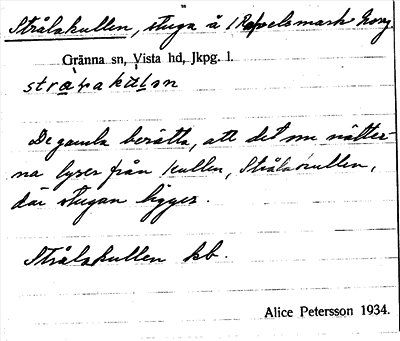 Strålakullen, stuga å
Gränna sn, Vista hd, Jkpg. l.
De gamla berätta, att det om nätter-
na lyser från kullen, Strålakullen,
där stugan ligger.
Strålakullen kb.
Alice Petersson 1934.